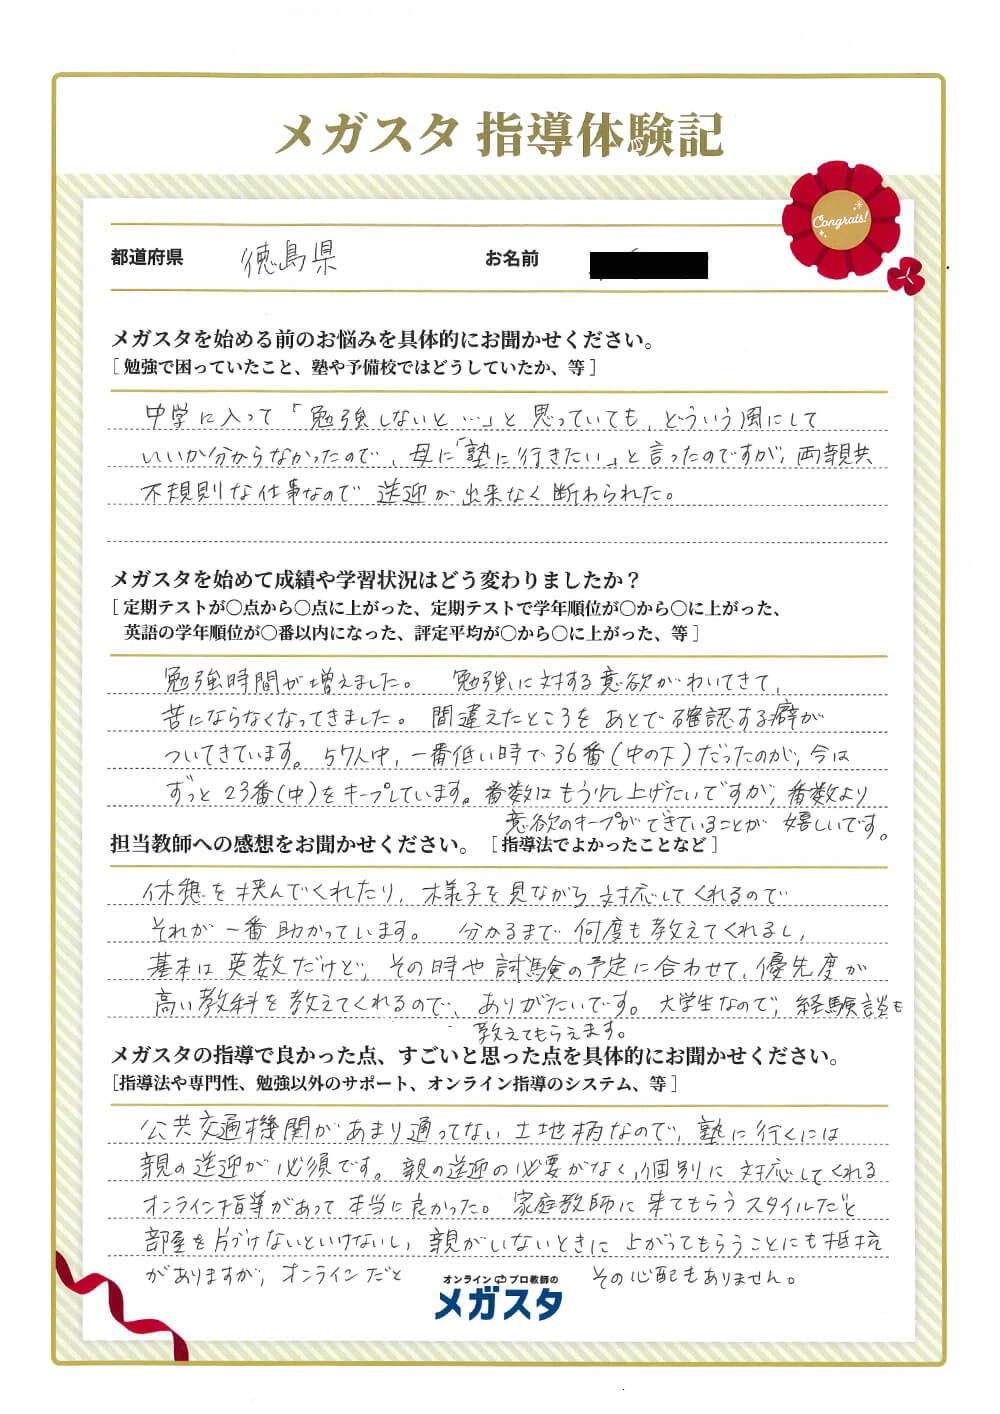 メガスタ 指導体験記
Congrats!
都道府県 徳島県 お名前
メガスタを始める前のお悩みを具体的にお聞かせください。
[ 勉強で困っていたこと、塾や予備校ではどうしていたか、等 ]
中学に入って「勉強しないと…」と思っていても、どういう風にして
いいか分からなかったので、母に「塾に行きたい」と言ったのですが、両親共
不規則な仕事なので 送迎が出来なく断わられた。
メガスタを始めて成績や学習状況はどう変わりましたか？
[ 定期テストが〇点から〇点に上がった、定期テストで学年順位が〇から〇に上がった、
英語の学年順位が〇番以内になった、評定平均が〇から〇に上がった、等 ]
勉強時間が増えました。 勉強に対する意欲がわいてきて、
苦にならなくなってきました。間違えたところをあとで確認する癖が
ついてきています。57人中、一番低い時で36番(中の下)だったのが、今は
ずっと23番(中)をキープしています。番数はもう少し上げたいですが、番数より
意欲のキープができていることが嬉しいです。
担当教師への感想をお聞かせください。 [ 指導法でよかったことなど ]
休憩を挟んでくれたり、様子を見ながら対応してくれるので
それが一番助かっています。 分かるまで何度も教えてくれるし、
基本は英数だけど、その時や試験の予定に合わせて、優先度が
高い教科を教えてくれるので、ありがたいです。大学生なので、経験談も
教えてもらえます。
メガスタの指導で良かった点、すごいと思った点を具体的にお聞かせください。
[指導法や専門性、勉強以外のサポート、オンライン指導のシステム、等 ]
公共交通機関があまり通ってない土地柄なので、塾に行くには
親の送迎が必須です。親の送迎の必要がなく、個別に対応してくれる
オンライン指導があって本当に良かった。家庭教師に来てもらうスタイルだと
部屋を片づけないといけないし、親がいないときに上がってもらうことにも抵抗
がありますが、オンラインだと その心配もありません。
オンライン プロ教師の
メガスタ